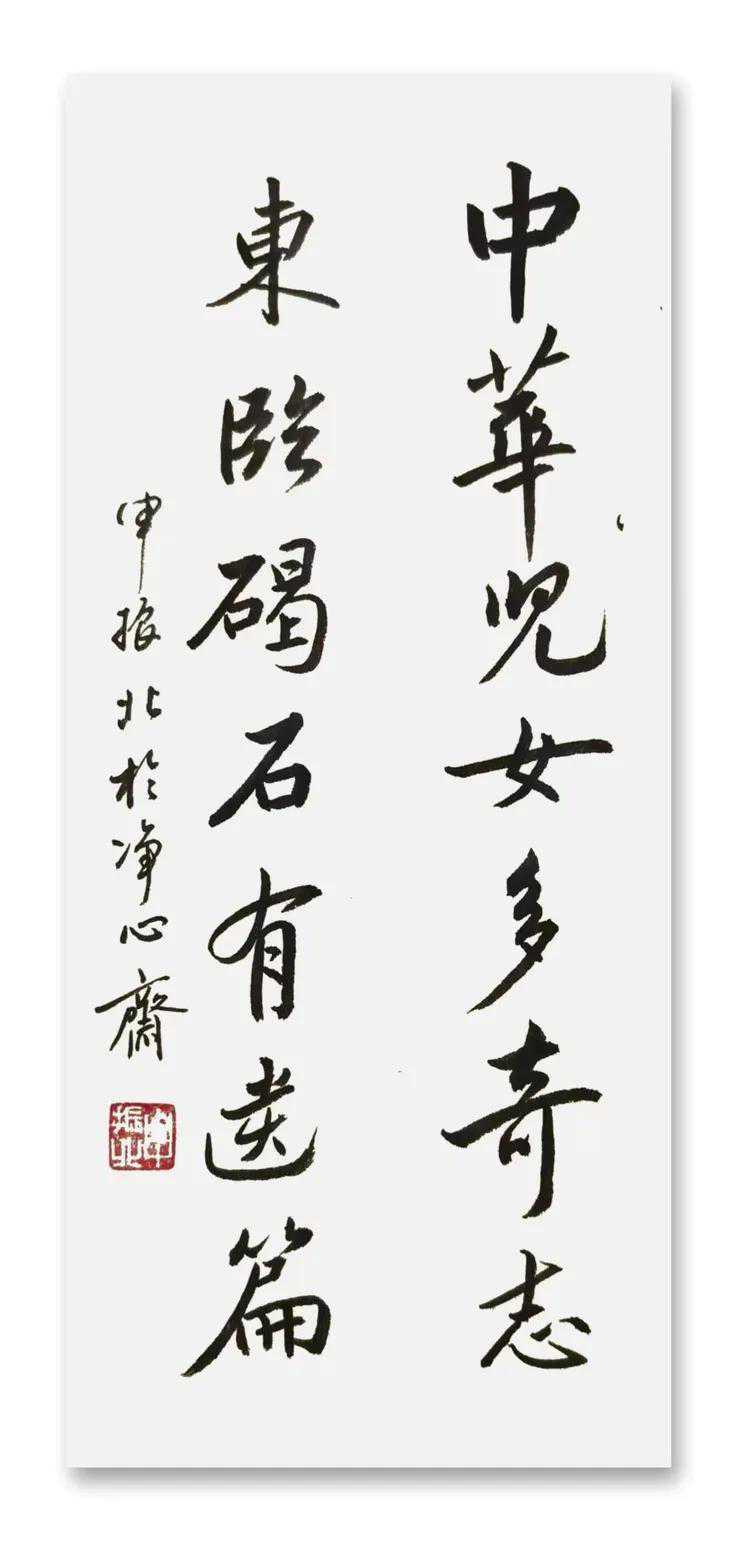 中華児女多奇志
東臨碣石有遗篇
申振北於净心齋
申振北